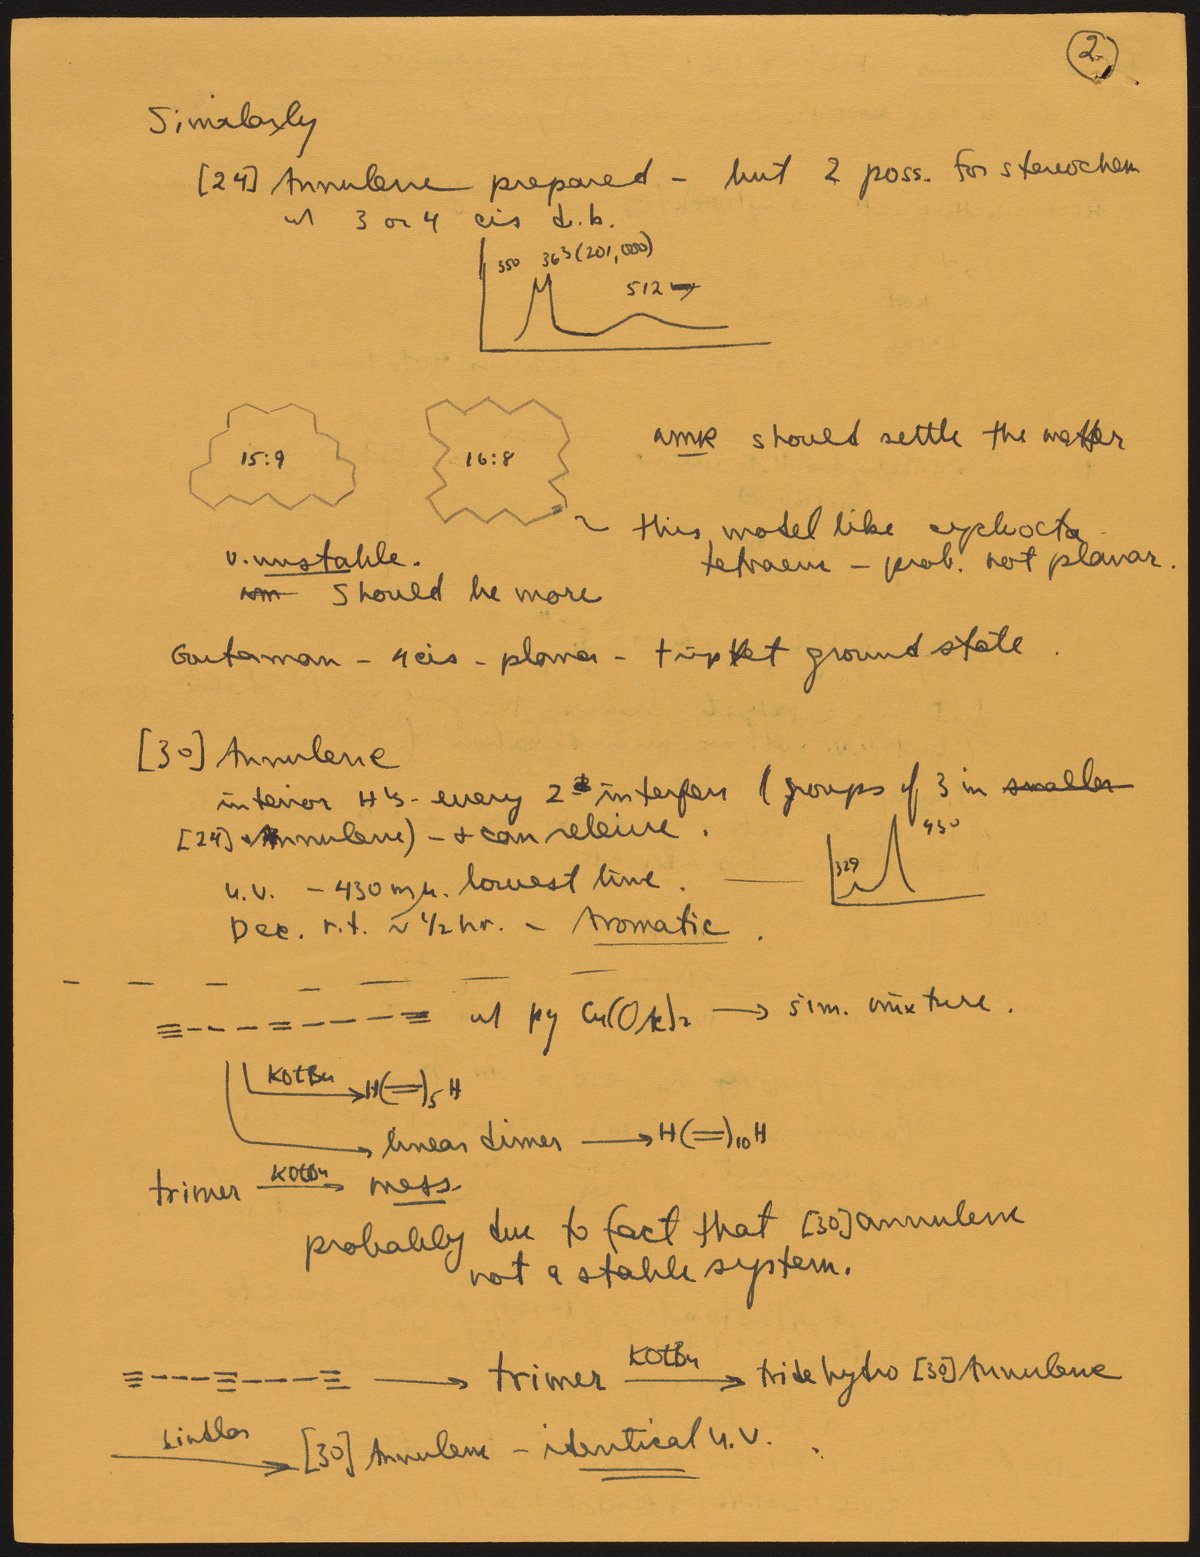 2
Similarly
[24] Annulene prepared - but 2 poss. for stereochem
w/ 3 or 4 cis d.b.
350 363 (201,000)
512
15:9
16:8
NMR should settle the matter
~ this model like cycloocta
tetraene - prob. not planar.
v. unstable.
Should be more
Gouterman - 4 cis - planar - triplet ground state.
[30] Annulene
interior H's - every 2 interfere (groups of 3 in smaller
[24] Annulene) - & can relieve.
430
329
u.v. - 430 mμ. lowest line.
Dec. r.t. ~ 1/2 hr. - Aromatic.
w/ py Cu(OAc)2 → sim. mixture.
KOtBu → H(=)5H
linear dimer → H(=)10H
trimer KOtBu → mess
probably due to fact that [30] annulene
not a stable system.
≡---≡---≡ → trimer KOtBu → tridehydro [30] Annulene
Lindlar → [30] Annulene - identical u.v.